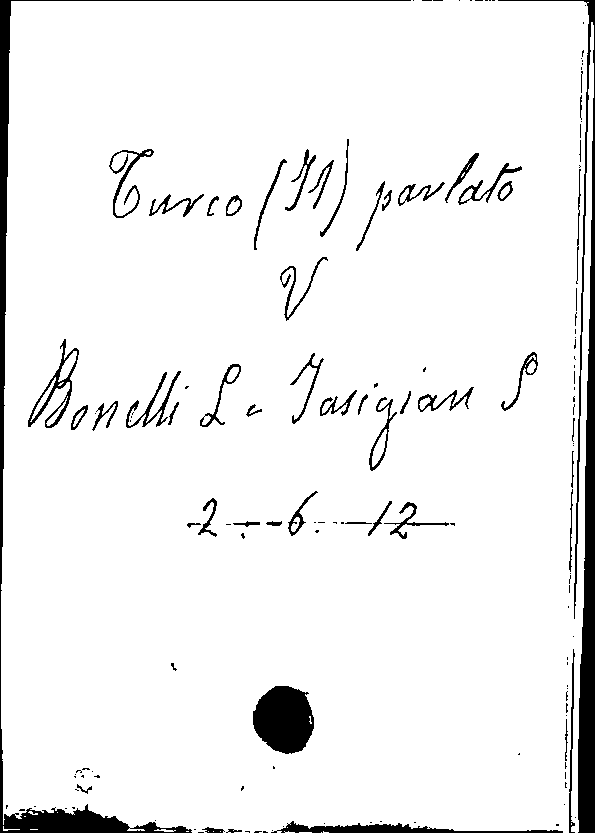 Turco (Il) parlato
V
Bonelli L e Jasigian S
2. 6. 12